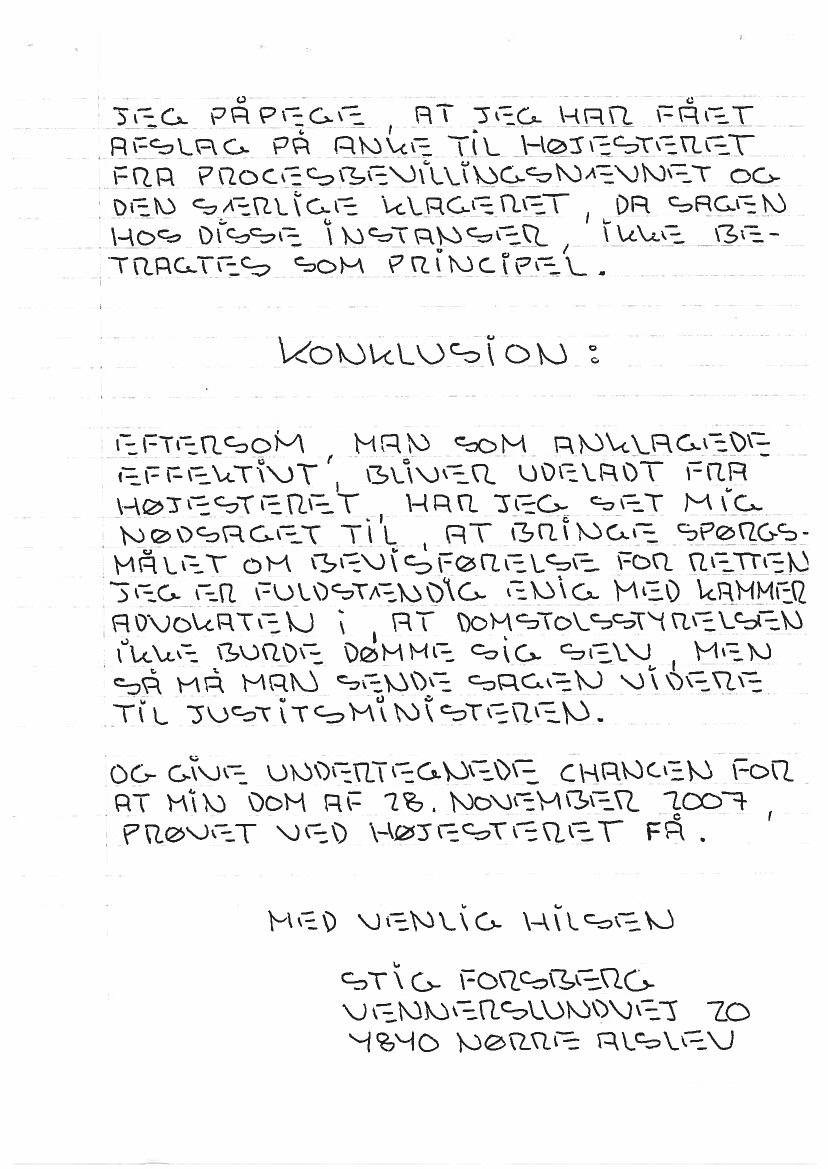 JEG PÅPEGE, AT JEG HAR FÅET
AFSLAG PÅ ANKE TIL HØJESTERET
FRA PROCESBEVILLINGSNÆVNET OG
DEN SÆRLIGE KLAGERET, DA SAGEN
HOS DISSE INSTANSER, IKKE BE-
TRAGTES SOM PRINCIPEL.
KONKLUSION:
EFTERSOM, MAN SOM ANKLAGEDE
EFFEKTIVT, BLIVER UDELADT FRA
HØJESTERET, HAR JEG SET MIG
NØDSAGET TIL, AT BRINGE SPØRGS-
MÅLET OM BEVISFØRELSE FOR RETTEN
JEG ER FULDSTÆNDIG ENIG MED KAMMER
ADVOKATEN I, AT DOMSTOLSSTYRELSEN
IKKE BURDE DØMME SIG SELV, MEN
SÅ MÅ MAN SENDE SAGEN VIDERE
TIL JUSTITSMINISTEREN.
OG GIVE UNDERTEGNEDE CHANCEN FOR
AT MIN DOM AF 28. NOVEMBER 2007,
PRØVET VED HØJESTERET FÅ.
MED VENLIG HILSEN
STIG FORSBERG
VENNERSLUNDVEJ 20
4840 NØRRE ALSLEV